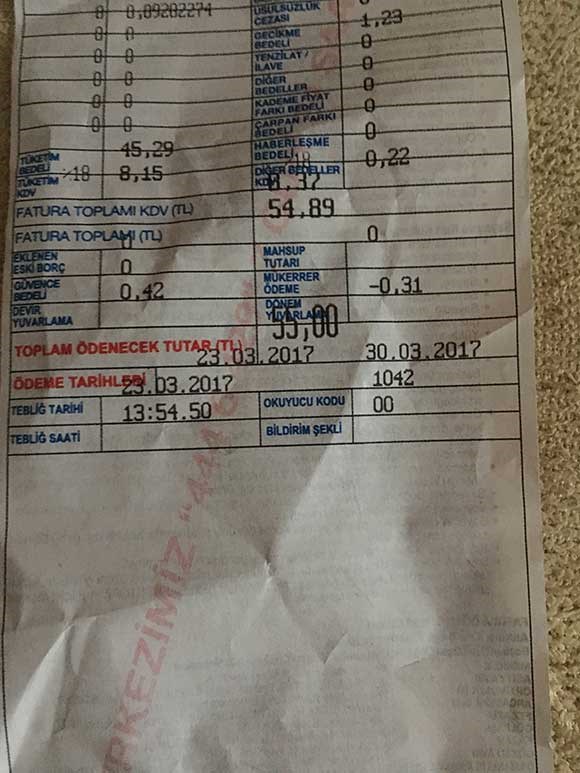 0 0,09202274
USULSUZLUK CEZASI 1,23
0 0
GECİKME BEDELİ 0
0 0
TENZİLAT / İLAVE 0
0 0
DİĞER BEDELLER 0
0 0
KADEME FİYAT FARKI BEDELİ 0
0 0
ÇARPAN FARKI BEDELİ 0
TÜKETİM BEDELİ 45,29
HABERLEŞME BEDELİ 0,22
TÜKETİM KDV %18 8,15
DİĞER BEDELLER KDV 0,37
FATURA TOPLAMI KDV (TL) 54,89
FATURA TOPLAMI (TL) 0
0
EKLENEN ESKİ BORÇ 0
MAHSUP TUTARI
GÜVENCE BEDELİ 0,42
MÜKERRER ÖDEME -0,31
DEVİR YUVARLAMA
DÖNEM YUVARLAMA 55,00
TOPLAM ÖDENECEK TUTAR (TL)
23.03.2017 30.03.2017
ÖDEME TARİHLERİ 23.03.2017 1042
TEBLİĞ TARİHİ 13:54.50
OKUYUCU KODU 00
TEBLİĞ SAATİ
BİLDİRİM ŞEKLİ
RKEZİMİZ "444